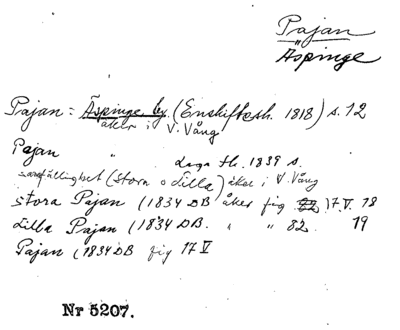 Pajan
Äspinge
Pajan = Äspinge by (Enskiftesh. 1818) s. 12
åker i V. Vång
Pajan " Laga sk. 1839 s.
samfällighet (Stora o Lilla) åker i V. Vång
Stora Pajan (1834 DB åker fig 17.V. 18
Lilla Pajan (1834 DB. " " 82. 19
Pajan (1834 DB fig 17 V
Nr 5207.